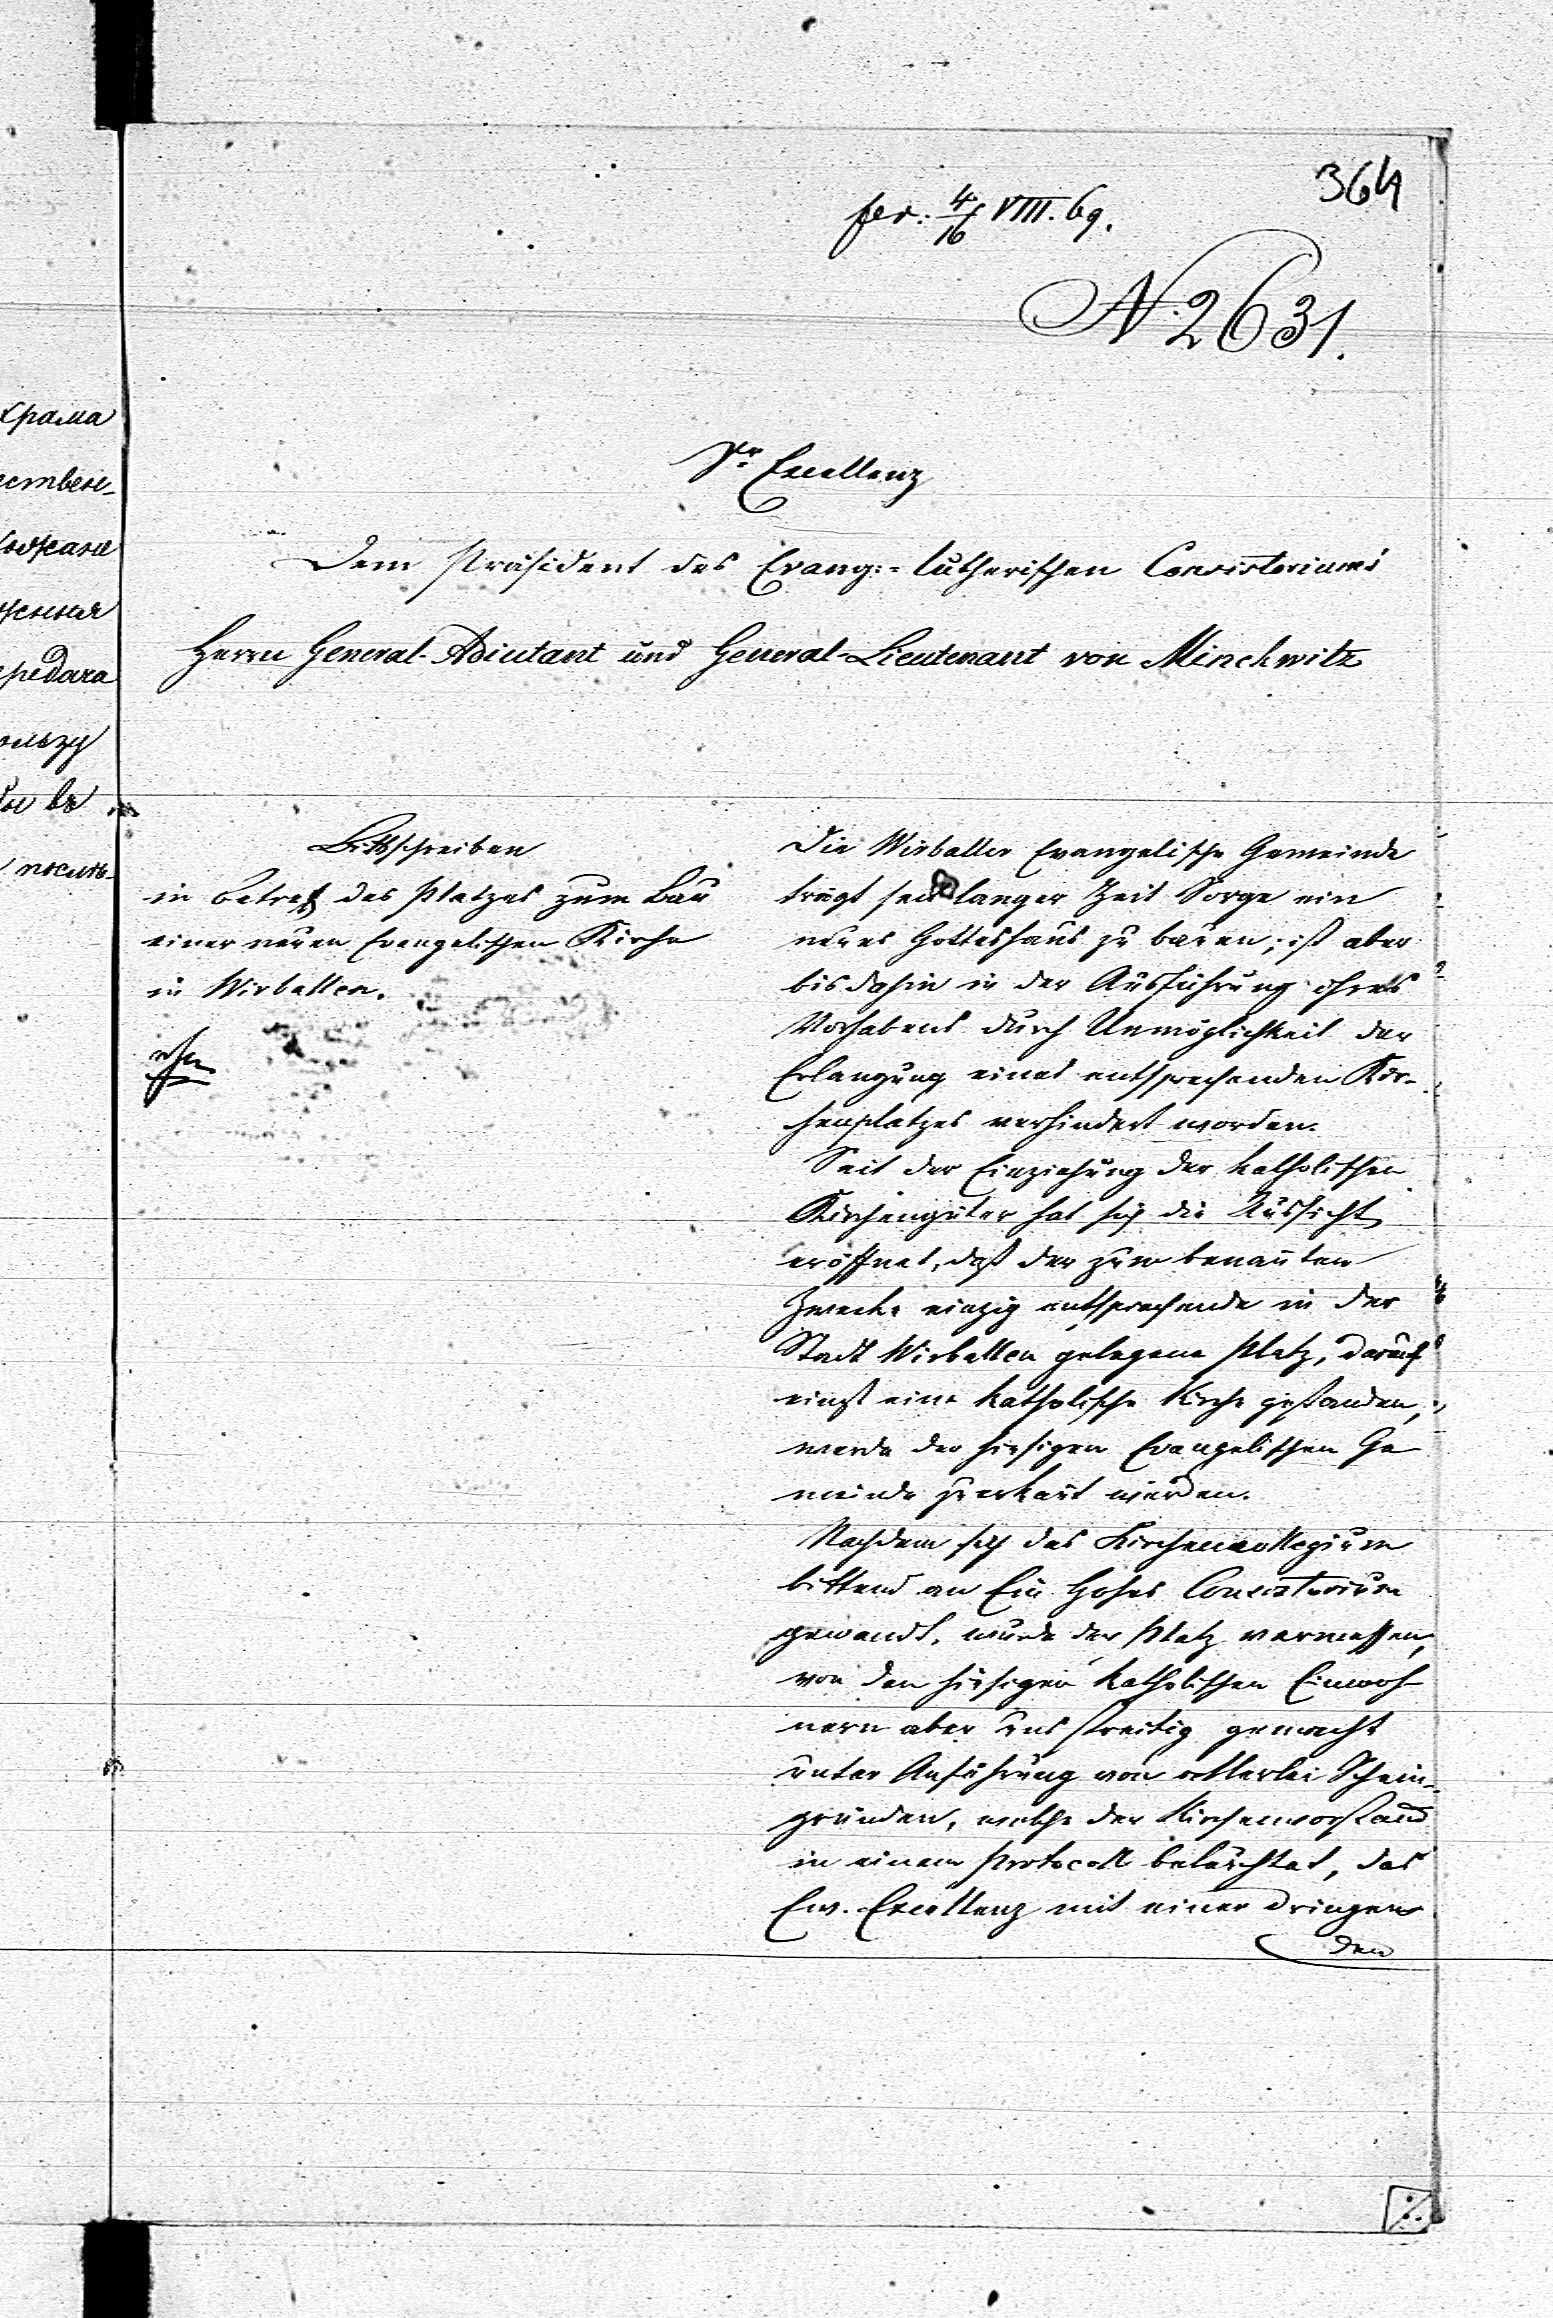 364
per: 4/16 VIII. 69.
N. 2631.
Sr Excellenz
Dem Präsident des Evang:-lutherischen Consistoriums
Herrn General-Adiutant und General-Lieutenant von Minckwitz
Bittschreiben
in Betreff des Platzes zum Bau
einer neuen Evangelischen Kirche
in Wirballen.
Die Wirballer Evangelische Gemeinde
trägt seit langer Zeit Sorge ein
neues Gotteshaus zu bauen; ist aber
bis dahin in der Ausführung ihres
Vorhabens durch Unmöglichkeit der
Erlangung eines entsprechenden Kir-
chenplatzes verhindert worden.
Seit der Einziehung der katholischen
Kirchengüter hat sich die Aussicht
eröffnet, daß der zum benannten
Zwecke einzig entsprechende in der
Stadt Wirballen gelegene Platz, darauf
einst eine katholische Kirche gestanden,
werde der hiesigen Evangelischen Ge
meinde zuerkant werden.
Nachdem sich das Kirchencollegium
bittend an Ein Hohes Consistorium
gewandt, wurde der Platz vermessen,
von den hiesigen katholischen Einwoh-
nern aber uns streitig gemacht
unter Anführung von allerlei Schein-
gründen, welche der Kirchenvorstand
in einem Protocoll beleuchtet, das
Ew. Excellenz mit einer dringen
den
храма
ственн-
редача
ользу
въ